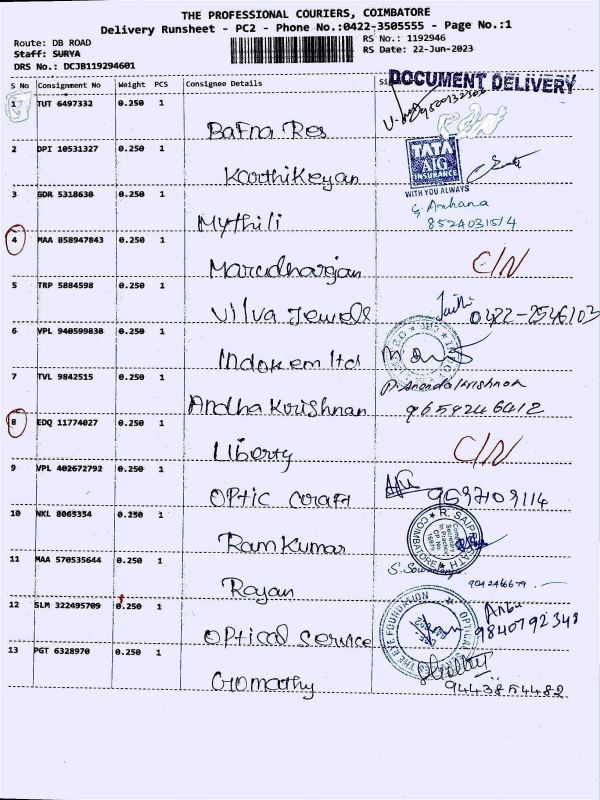 THE PROFESSIONAL COURIERS, COIMBATORE
Delivery Runsheet - PC2 - Phone No.:0422-3505555 - Page No.:1
Route: DB ROAD
RS No.: 1192946
Staff: SURYA
RS Date: 22-Jun-2023
DRS No.: DCJB119294601
S No Consignment No Weight PCS Consignee Details
DOCUMENT DELIVERY
1 TUT 6497332 0.250 1
Bafna Res
2 DPI 10531327 0.250 1
TATA
AIG
INSURANCE
WITH YOU ALWAYS
Karthikeyan
3 GDR 5318630 0.250 1
Mythili
8524031514
4 MAA 858947843 0.250 1
Marudharajan
C/N
5 TRP 5884598 0.250 1
Vilva Jewels
0422-2546103
6 VPL 940599838 0.250 1
Indokem ltd
7 TVL 9842515 0.250 1
P. Ananda krishnan
Andha Krishnan
9659246412
8 EDQ 11774027 0.250 1
Liberty
C/N
9 VPL 402672792 0.250 1
Optic Craft
9597109114
10 NKL 8065354 0.250 1
Ram Kumar
COIMBATORE
11 MAA 570535644 0.250 1
Rajan
12 SLM 322495709 0.250 1
THE EYE FOUNDATION
Optical Service
Anbu
9840792348
13 PGT 6328970 0.250 1
Gomathy
9443854482